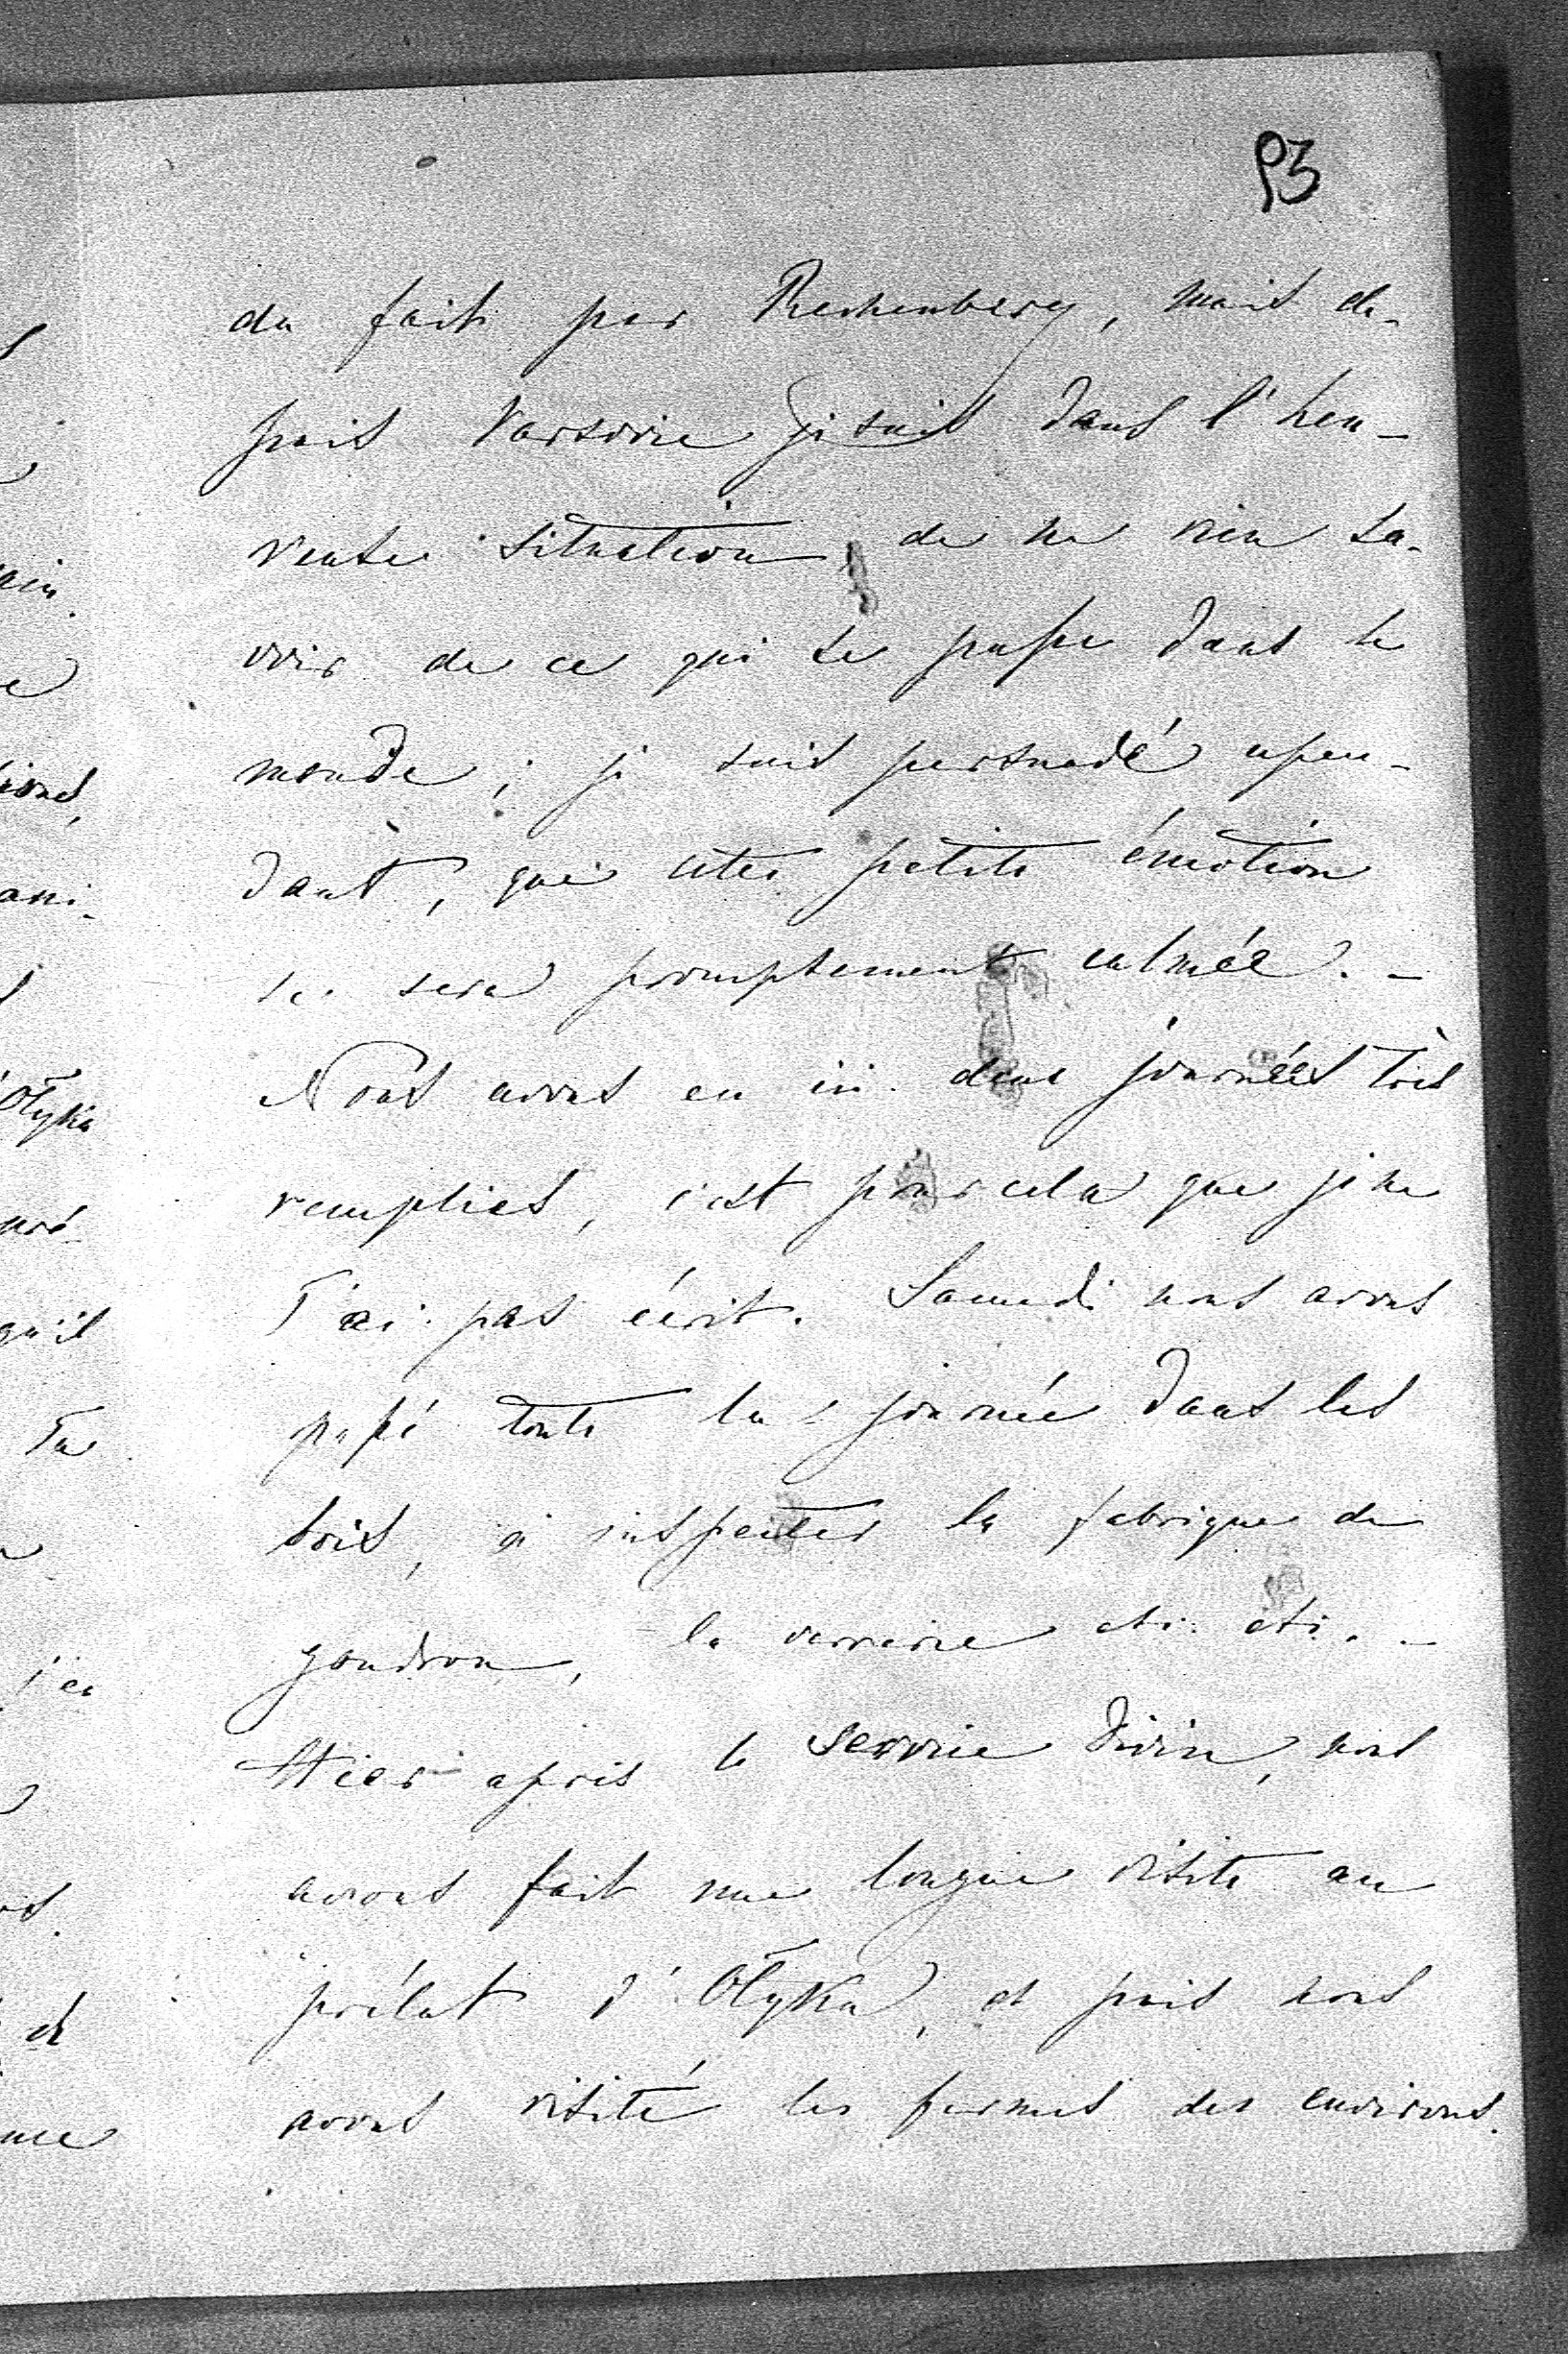 93
du fait par Rechenberg, mais de-
puis Varsovie je suis dans l'heu-
reuse situation de ne rien sa-
voir de ce qui se passe dans le
monde ; je suis persuadé cepen-
dant, que cette petite émotion
se sera promptement calmée. -
Nous avons eu ici deux journées très
remplies, c'est pour cela que je ne
T'ai pas écrit. Samedi nous avons
passé toute la journée dans les
bois, à inspecter la fabrique de
goudron, la verrerie etc. etc. -
Hier après le service divin, nous
avons fait une longue visite au
prélat d'Ołyka, et puis nous
avons visité les fermes des environs.
Ołyka
qu'il
Tu
j'ai
et